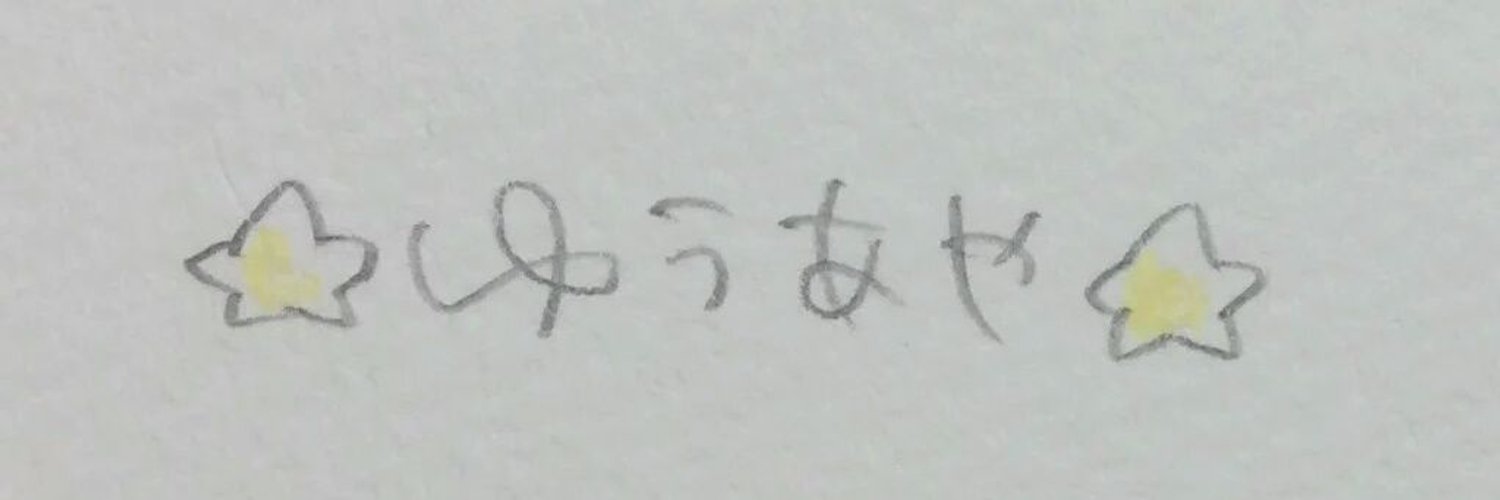 ゆうあや